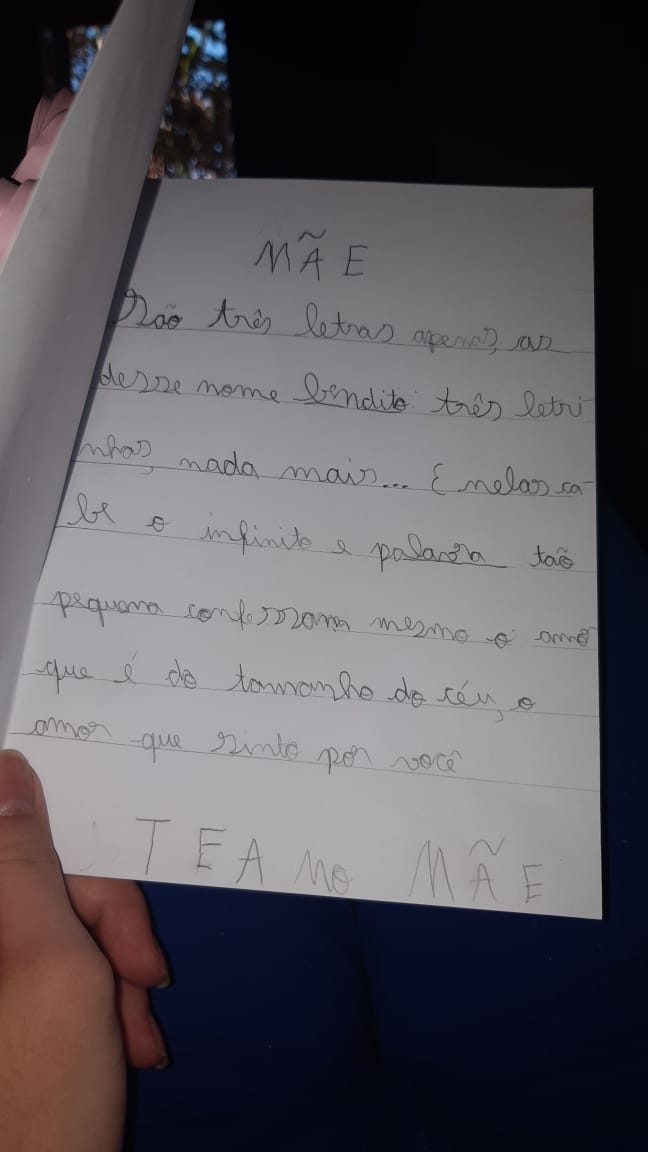 MÃE
São três letras apenas, as
desse nome bendito: três letri
nhas, nada mais... E nelas ca-
be o infinito e palavra tão
pequena confessam mesmo o ame
que é do tamanho do céu, o
amor que sinto por você
TE AMO MÃE